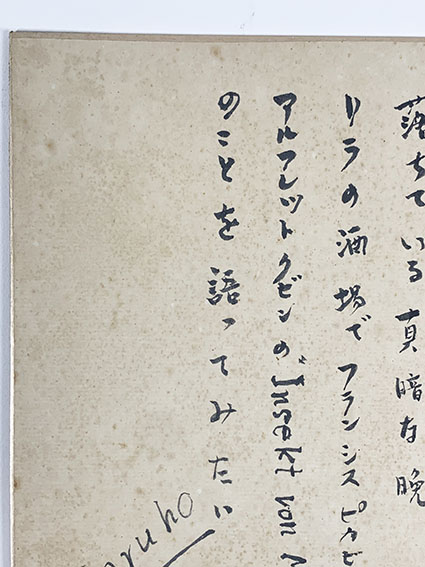 落ちている真暗な晩
リラの酒場でフランシスピカビ
アルフレットクビンの"Insekt von
のことを語ってみたい
ruho